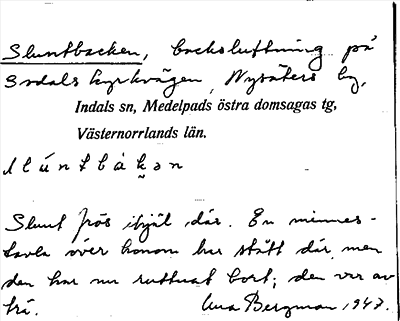 Sluntbacken, backsluttning på
Indals kyrkvägen, Nysäters by,
Indals sn, Medelpads östra domsagas tg,
Västernorrlands län.
Slunt frös ihjäl där. En minnes-
tavla över honom har stått där, men
den har nu ruttnat bort; den var av
trä. Bergman 1947.